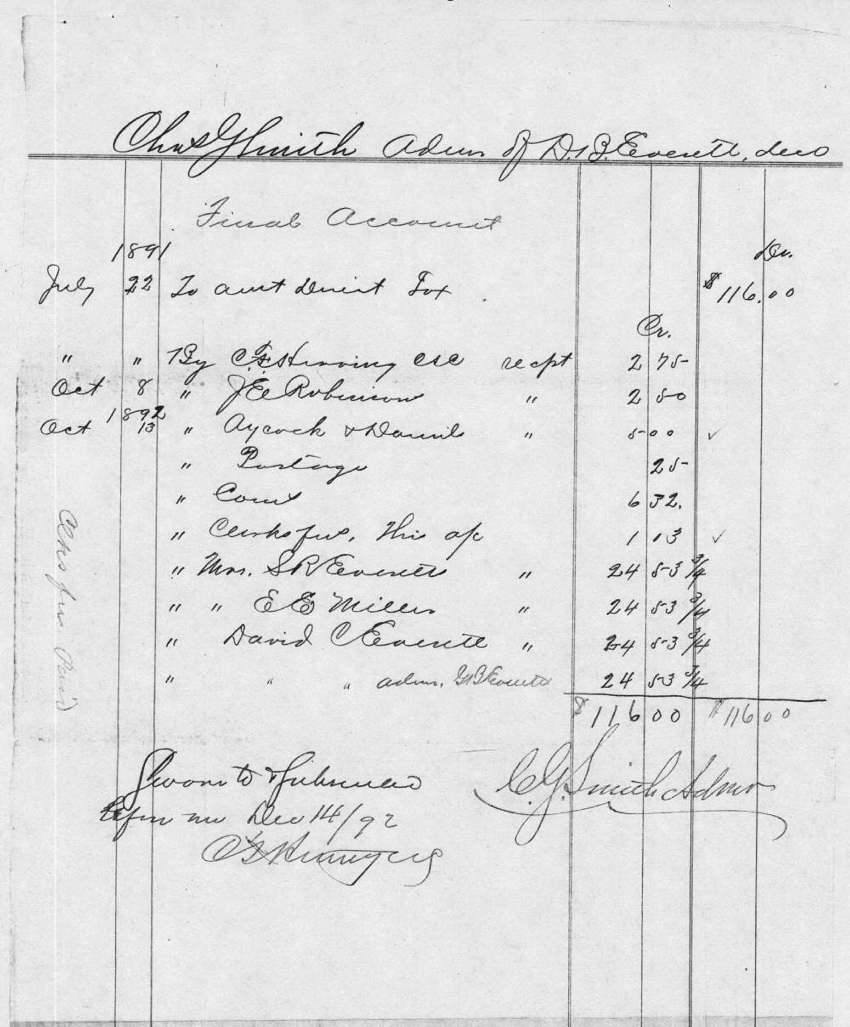 Chas G Smith Admr of D. B. Everett, decd
Final Account
1891
Dr.
July 22 To amt Direct Tax $116.00
Cr.
" " By C F Herring CSC recpt 2 75
Oct 8 " J E Robinson " 2 50
1892
Oct 13 " Aycock & Daniels " 5 00 ✓
" Postage 25
" Coms 6 32.
" Clerks fees, this a/c 1 13 ✓
" Mrs. S R Everett " 24 53 3/4
" " E E Miller " 24 53 3/4
" David C Everett " 24 53 3/4
" " " admr. B Everett 24 53 3/4
$116 00 $116 00
Clks fees Paid
Sworn to & subscribed
before me Dec 14/92
C. G. Smith Admr
C F Herring CSC